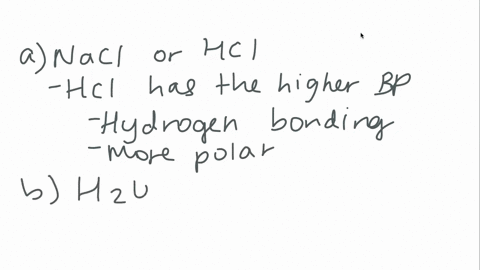 a) NaCl or HCl
- HCl has the higher BP
- Hydrogen bonding
- more polar
b) H2U